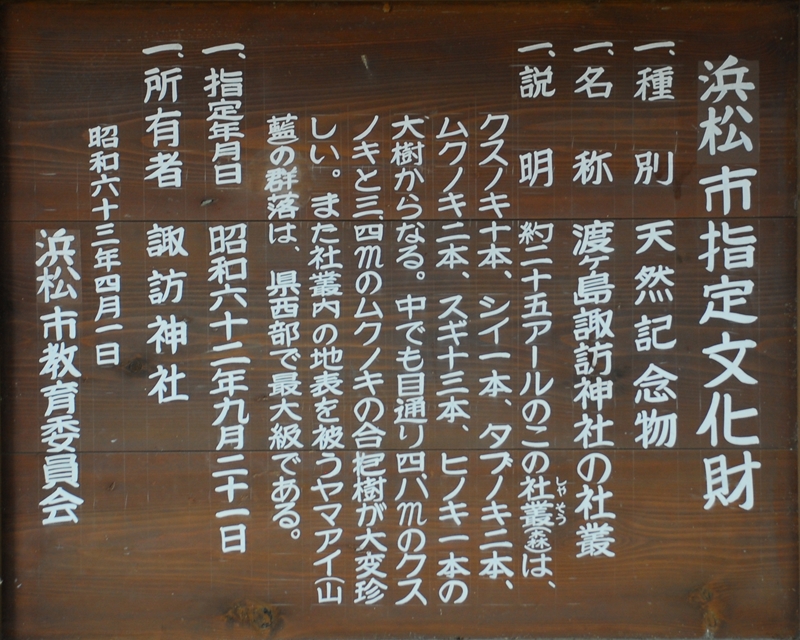 浜松市指定文化財
一、種別 天然記念物
一、名称 渡ケ島諏訪神社の社叢
一、説明 約二十五アールのこの社叢(森)は、
しゃそう
クスノキ十本、シイ一本、タブノキ二本、
ムクノキ二本、スギ十三本、ヒノキ一本の
大樹からなる。中でも目通り四.八mのクス
ノキと三.四mのムクノキの合体樹が大変珍
しい。また社叢内の地表を被うヤマアイ(山
藍の群落は、県西部で最大級である。
一、指定年月日 昭和六十二年九月二十一日
一、所有者 諏訪神社
昭和六十三年四月一日
浜松市教育委員会